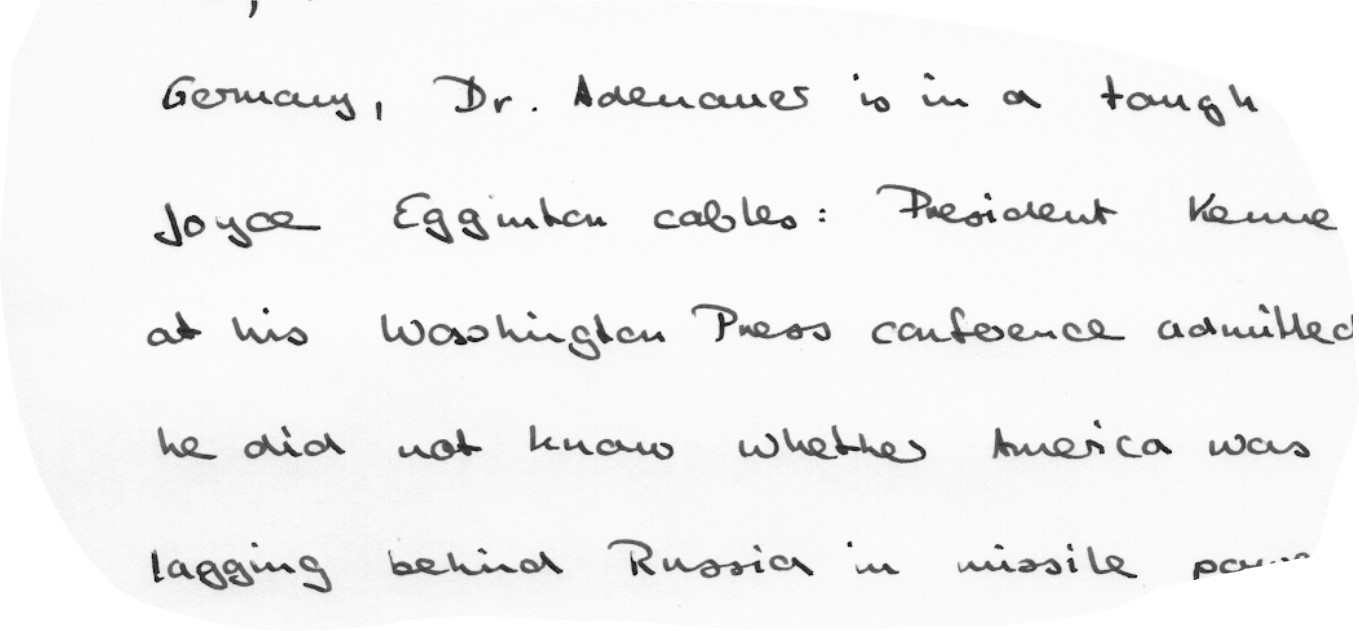 Germany, Dr. Adenauer is in a tough
Joyce Egginton cables: President Kenne
at his Washington Press conference admitted
he did not know whether America was
lagging behind Russia in missile